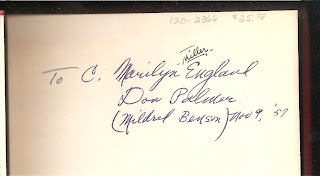 120-2366 $25.98
Miller
To C. Marilyn England
Don Palmer
(Mildred Benson) Nov 9, '57